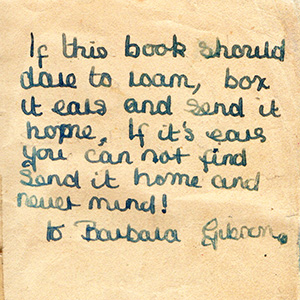 If this book should
dare to roam, box
it ears and send it
home, If it's ears
you can not find
Send it home and
never mind!
to Barbara Gibson.